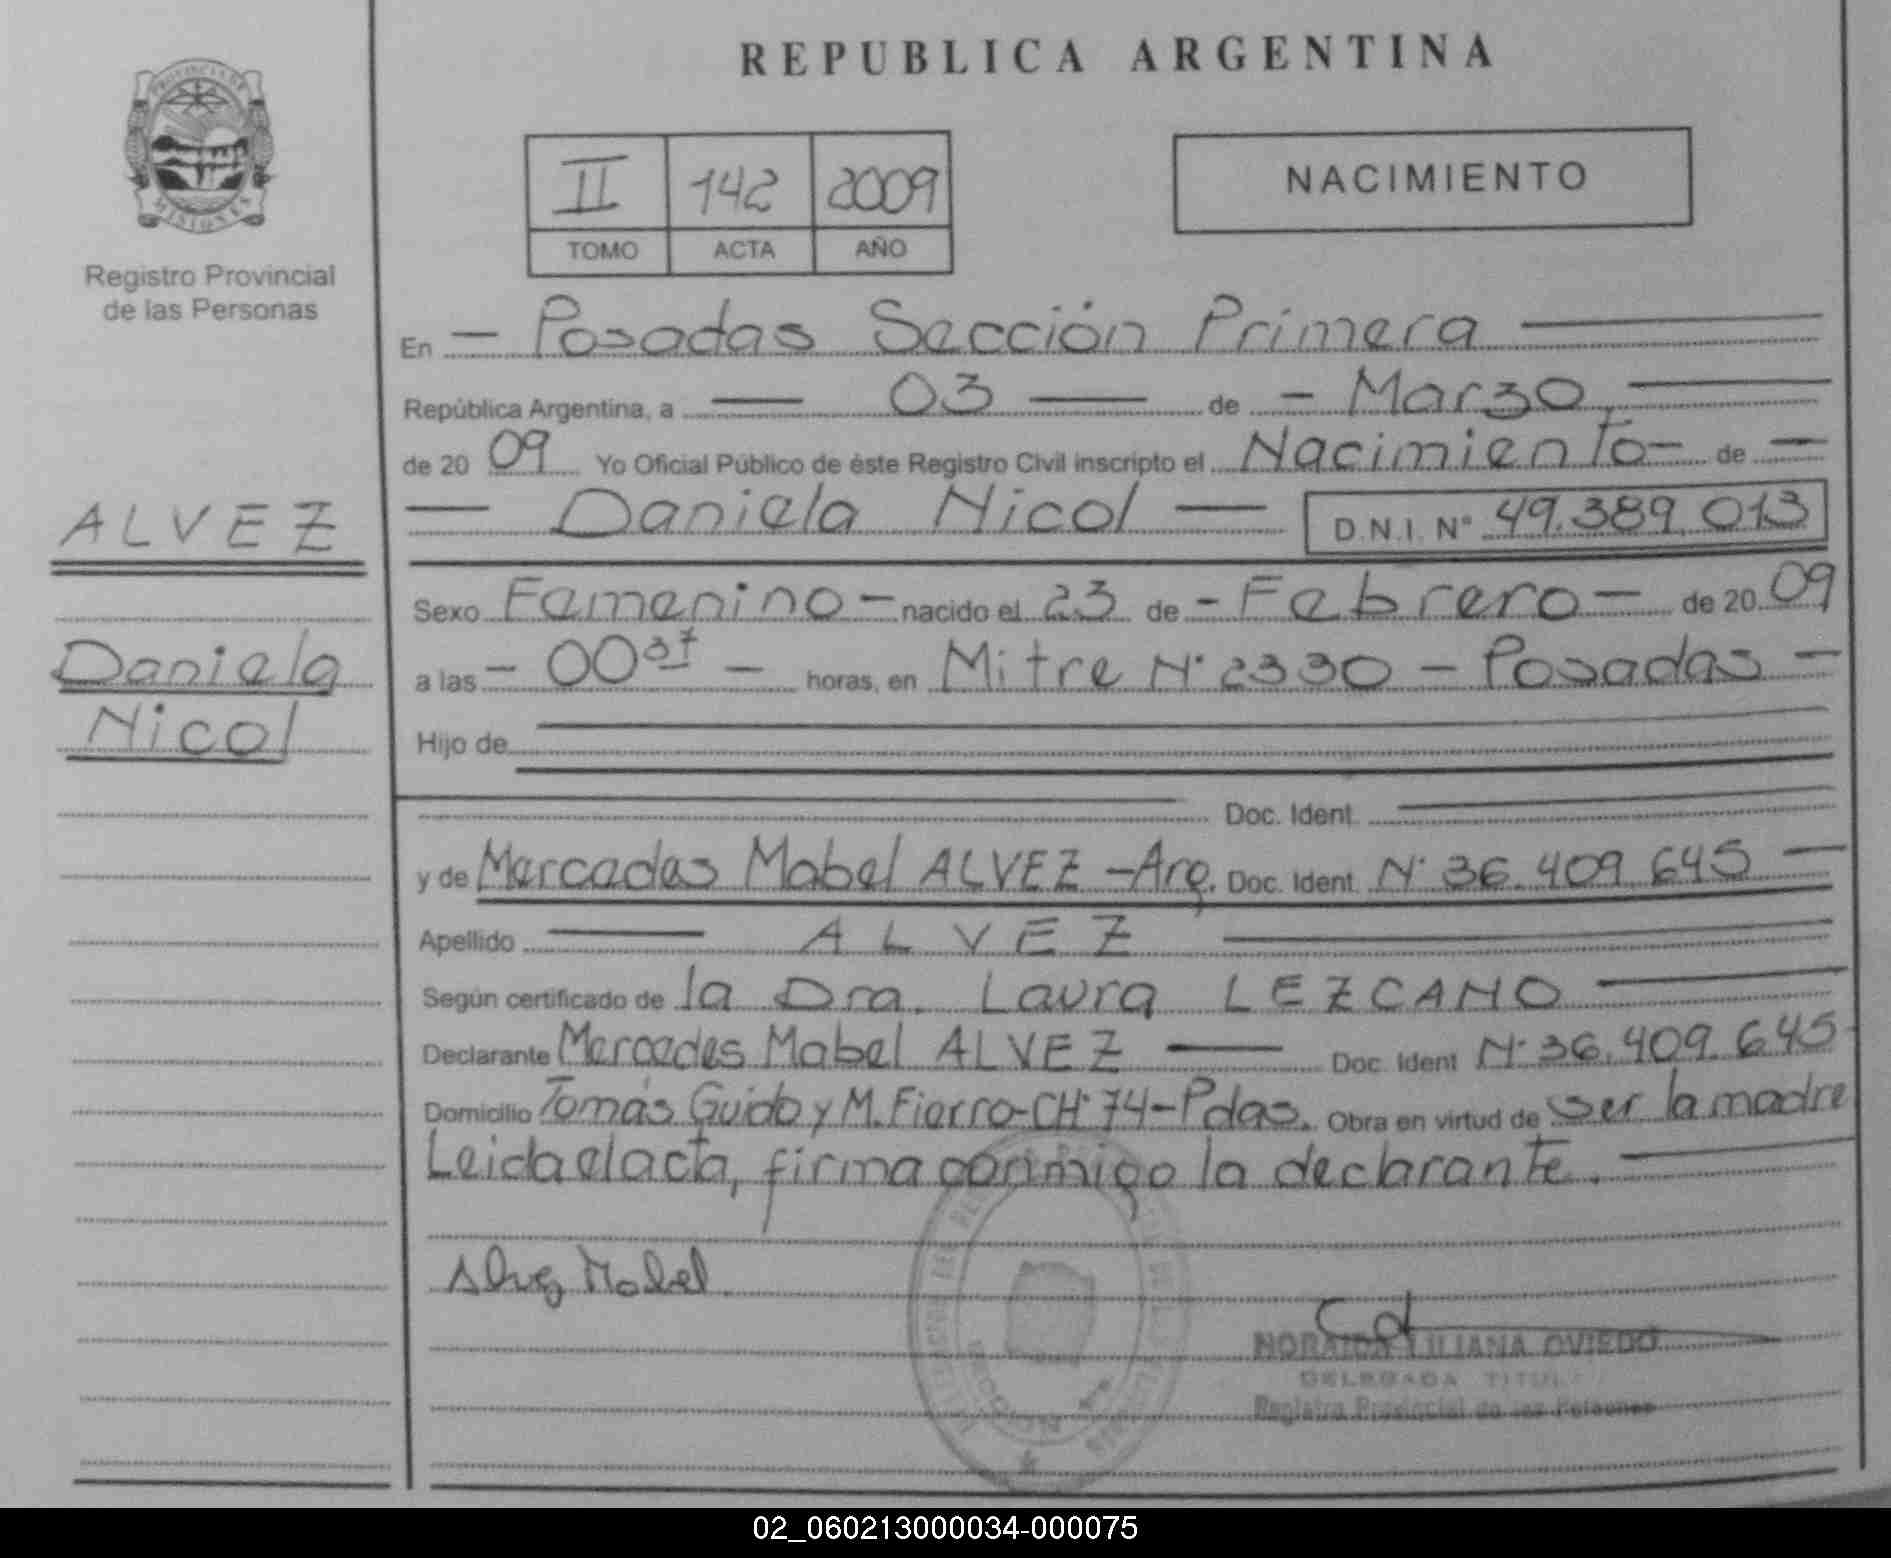 REPUBLICA ARGENTINA
PROVINCIA DE
MISIONES
Registro Provincial
de las Personas
II 142 2009
TOMO ACTA AÑO
NACIMIENTO
En - Posadas Sección Primera
República Argentina, a 03 de - Marzo
de 20 09 Yo Oficial Público de éste Registro Civil inscripto el Nacimiento - de -
- Daniela Nicol - D.N.I. Nº 49.389.013
ALVEZ
Daniela
Nicol
Sexo Femenino - nacido el 23 de - Febrero - de 20 09
a las - 00 37 - horas, en Mitre Nº 2330 - Posadas -
Hijo de
Doc. Ident.
y de Mercedes Mabel ALVEZ - Arg. Doc. Ident. Nº 36.409.645
Apellido ALVEZ
Según certificado de la Dra. Laura LEZCANO
Declarante Mercedes Mabel ALVEZ Doc. Ident Nº 36.409.645
Domicilio Tomás Guido y M. Fierro - CHº 74 - Pdas. Obra en virtud de ser la madre
Leida el acta, firma conmigo la declarante.
Alvez Mabel
LILIANA OVIEDO
DELEGADA
Registro Provincial de las Personas
02_060213000034-000075